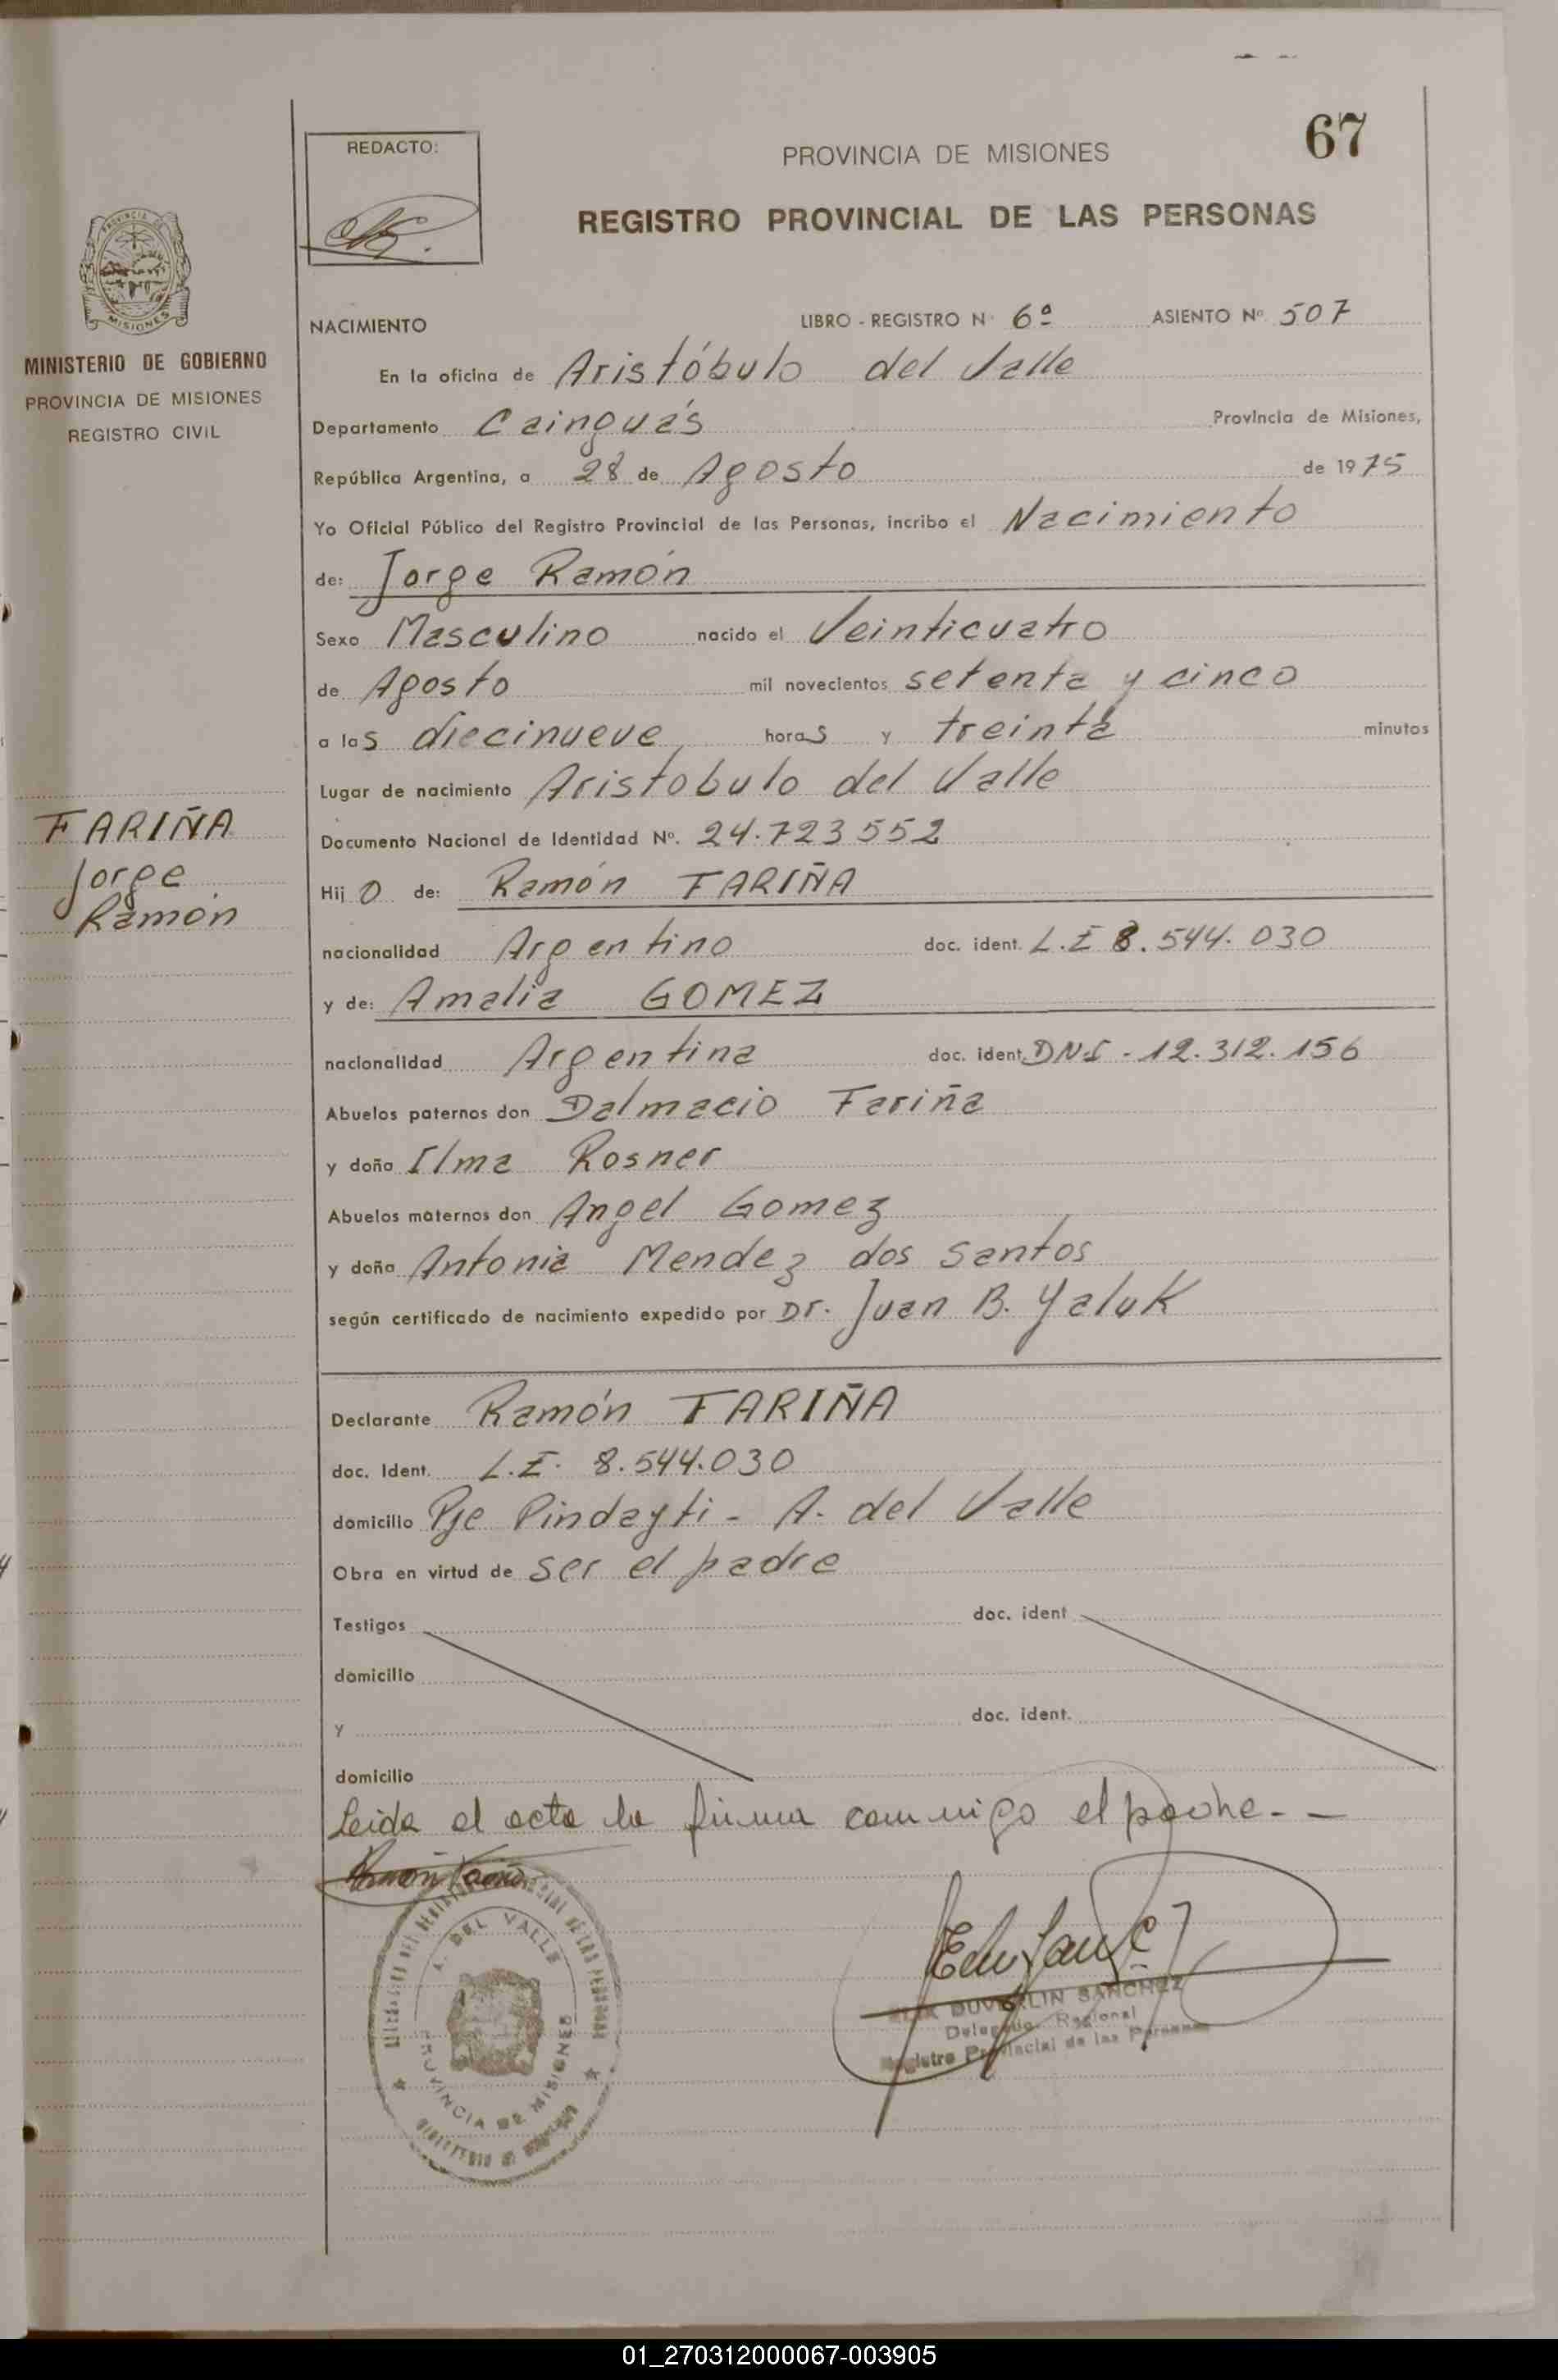 67
REDACTO:
PROVINCIA DE MISIONES
REGISTRO PROVINCIAL DE LAS PERSONAS
MISIONES
MINISTERIO DE GOBIERNO
PROVINCIA DE MISIONES
REGISTRO CIVIL
NACIMIENTO LIBRO - REGISTRO N° 6º ASIENTO Nº 507
En la oficina de Aristóbulo del Valle
Departamento Cainguás Provincia de Misiones,
República Argentina, a 28 de Agosto de 1975
Yo Oficial Público del Registro Provincial de las Personas, incribo el Nacimiento
de: Jorge Ramón
Sexo Masculino nacido el Veinticuatro
de Agosto mil novecientos setenta y cinco
a las diecinueve horas y treinta minutos
Lugar de nacimiento Aristobulo del Valle
FARIÑA
Jorge
Ramón
Documento Nacional de Identidad Nº. 24.723552
Hijo de: Ramón FARIÑA
nacionalidad Argentino doc. ident. L.E 8.544.030
y de: Amalia GOMEZ
nacionalidad Argentina doc. ident. DNI - 12.312.156
Abuelos paternos don Dalmacio Fariña
y doña Ilma Rosner
Abuelos maternos don Angel Gomez
y doña Antonia Mendez dos Santos
según certificado de nacimiento expedido por Dr. Juan B. Yaluk
Declarante Ramón FARIÑA
doc. Ident. L.E. 8.544.030
domicilio Pje Pindayti - A. del Valle
Obra en virtud de ser el padre
Testigos doc. ident
domicilio
y doc. ident.
domicilio
Leida el acta la firma conmigo el padre.-
A. DEL VALLE
PROVINCIA DE MISIONES
SANCHEZ
Delegado Regional
Registro Provincial de las Personas
01_270312000067-003905